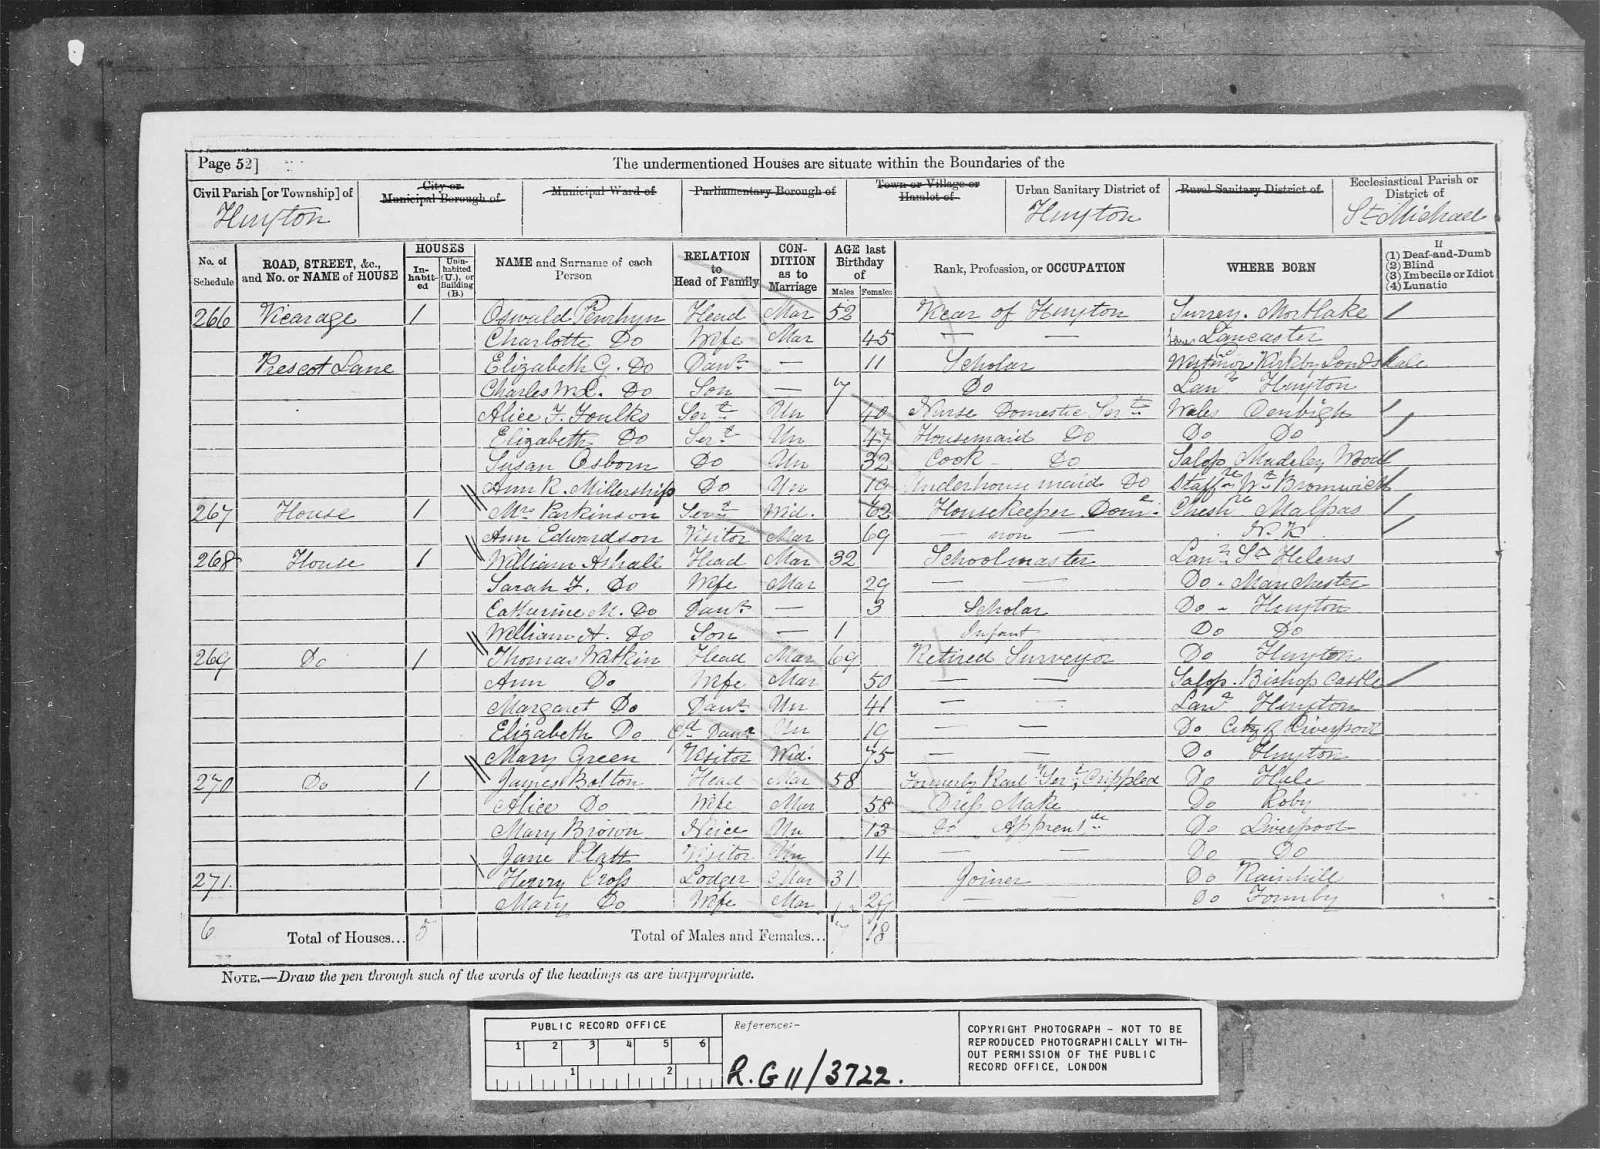 Page 52] The undermentioned Houses are situate within the Boundaries of the
Civil Parish [or Township] of City or Municipal Borough of Municipal Ward of Parliamentary Borough of Town or Village or Hamlet of Urban Sanitary District of Rural Sanitary District of Ecclesiastical Parish or District of
Huyton Huyton St Michael
No. of Schedule ROAD, STREET, &c., and No. or NAME of HOUSE HOUSES In-habit-ed Unin-habited (U.), or Building (B.) NAME and Surname of each Person RELATION to Head of Family CON-DITION as to Marriage AGE last Birthday of Males Females Rank, Profession, or OCCUPATION WHERE BORN If (1) Deaf-and-Dumb (2) Blind (3) Imbecile or Idiot (4) Lunatic
266 Vicarage 1 Oswald Penrhyn Head Mar 52 Vicar of Huyton Surrey. Mortlake
Charlotte Do Wife Mar 45 — — Lancaster
Prescot Lane Elizabeth G. Do Daur — 11 Scholar Westmor Kirkby Lonsdale
Charles W.L. Do Son — 7 Do Lanc Huyton
Alice J. Foulks Servt Un 40 Nurse Domestic Servt Wales Denbigh
Elizabeth Do Servt Un 47 Housemaid Do Do Do
Susan Osborn Do Un 32 Cook Do Salop Madeley Wood
Ann R. Millership Do Un 19 Underhousemaid Do Staffre Wt Bromwich
267 House 1 Mrs Parkinson Servt Wid. 62 Housekeeper Dome Cheshre Malpas
Ann Edwardson Visitor Mar 69 — non — N.K.
268 House 1 William Ashall Head Mar 32 Schoolmaster Lanc St Helens
Sarah J. Do Wife Mar 29 — — Do - Manchester
Catherine M. Do Daur — 3 Scholar Do - Huyton
William A. Do Son — 1 Infant Do Do
269 Do 1 Thomas Watkin Head Mar 69 Retired Surveyor Do Huyton
Ann Do Wife Mar 50 — — Salop. Bishop Castle
Margaret Do Daur Un 41 — — Lanc Huyton
Elizabeth Do Gd Daur Un 19 — — Do City of Liverpool
Mary Green Visitor Wid. 75 — — Do Huyton
270 Do 1 James Bolton Head Mar 58 Formerly Rail Ser Crippled Do Hale
Alice Do Wife Mar 58 Dress Make Do Roby
Mary Brown Neice Un 13 Do Apprentice Do Liverpool
Jane Platt Visitor Un 14 — — Do Do
271. Henry Cross Lodger Mar 31 Joiner Do Rainhill
Mary Do Wife Mar 29 — — Do Formby
6 Total of Houses... 5 Total of Males and Females... 7 18
NOTE.—Draw the pen through such of the words of the headings as are inappropriate.
PUBLIC RECORD OFFICE
1 2 3 4 5 6
1 2
Reference:-
R.G 11/3722.
COPYRIGHT PHOTOGRAPH - NOT TO BE
REPRODUCED PHOTOGRAPHICALLY WITH-
OUT PERMISSION OF THE PUBLIC
RECORD OFFICE, LONDON